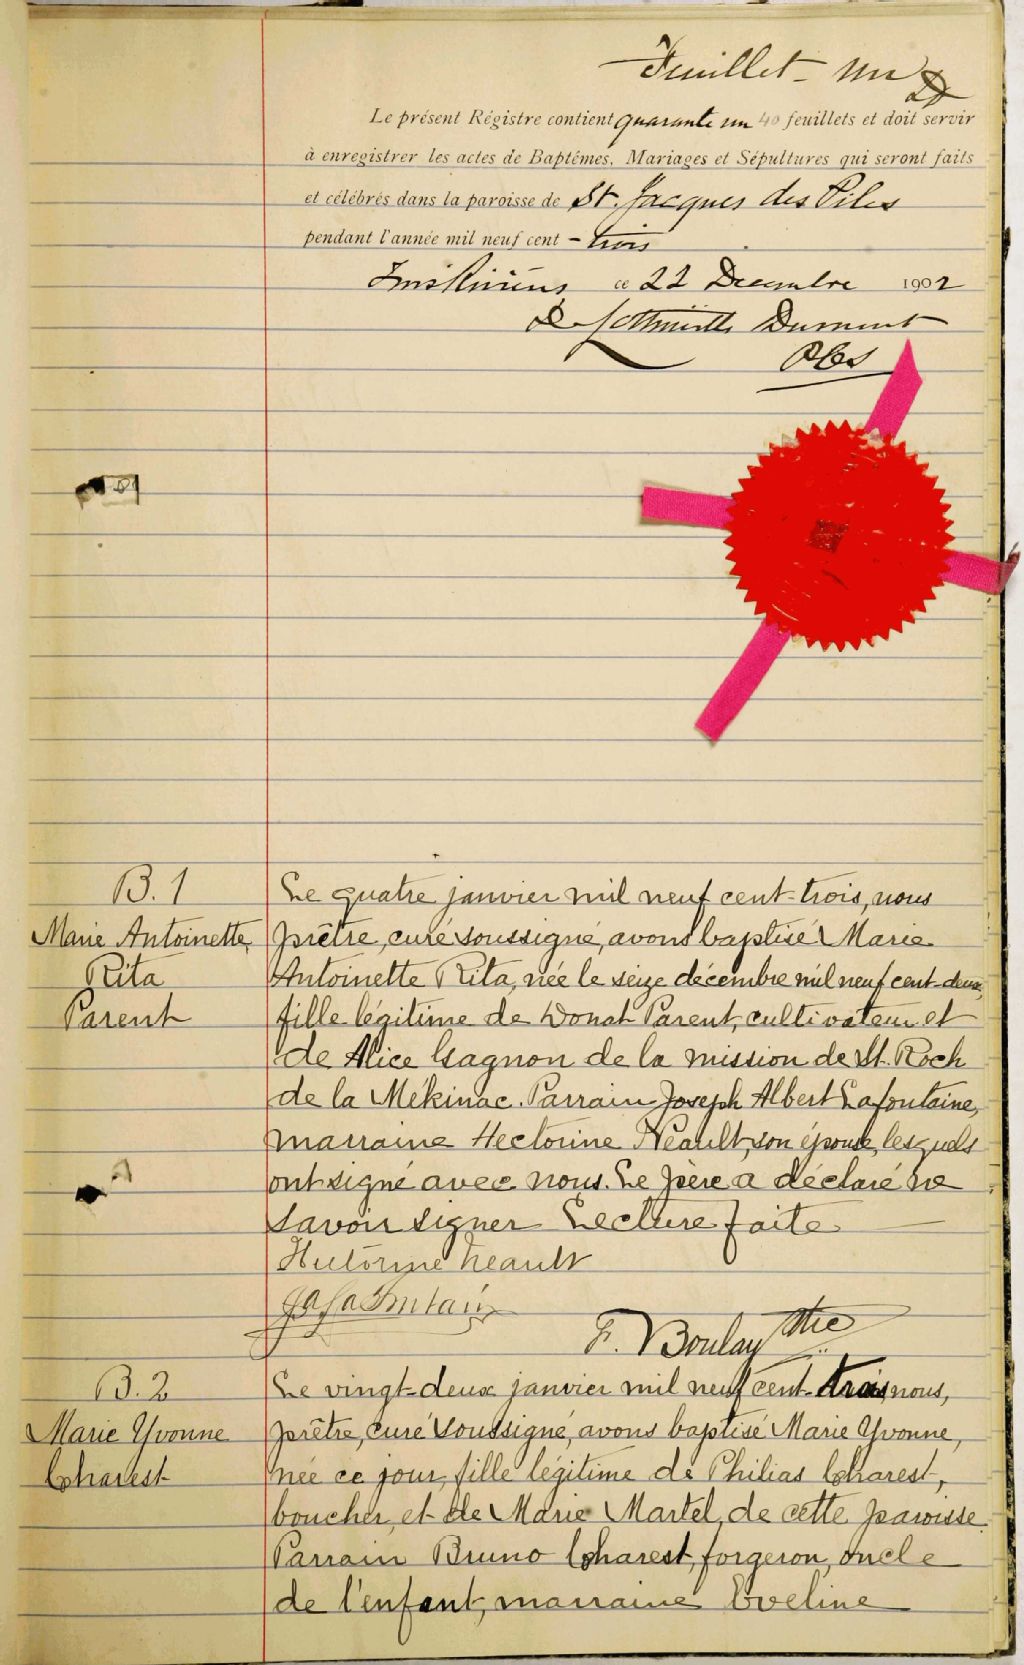 Feuillet - un
Le présent Régistre contient quarante un 40 feuillets et doit servir
à enregistrer les actes de Baptêmes, Mariages et Sépultures qui seront faits
et célébrés dans la paroisse de St. Jacques des Piles
pendant l'année mil neuf cent - trois
Trois Rivières ce 22 Decembre 1902
Dumont
B. 1
Marie Antoinette
Rita
Parent
Le quatre janvier mil neuf cent-trois, nous
prêtre, curé soussigné, avons baptisé Marie
Antoinette Rita, née le seize décembre mil neuf cent-deux,
fille légitime de Donat Parent, cultivateur et
de Alice Gagnon de la mission de St. Roch
de la Mékinac. Parrain Joseph Albert Lafontaine,
marraine Hectorine Néault, son épouse, lesquels
ont signé avec nous. Le père a déclaré ne
savoir signer Lecture faite
Hectorine Neault
J A Lafontaine
F. Boulay Ptre
B. 2
Marie Yvonne
Charest
Le vingt-deux janvier mil neuf cent-trois, nous,
prêtre, curé soussigné, avons baptisé Marie Yvonne,
née ce jour, fille légitime de Philias Charest,
boucher, et de Marie Martel, de cette paroisse.
Parrain Bruno Charest, forgeron, oncle
de l'enfant, marraine Eveline